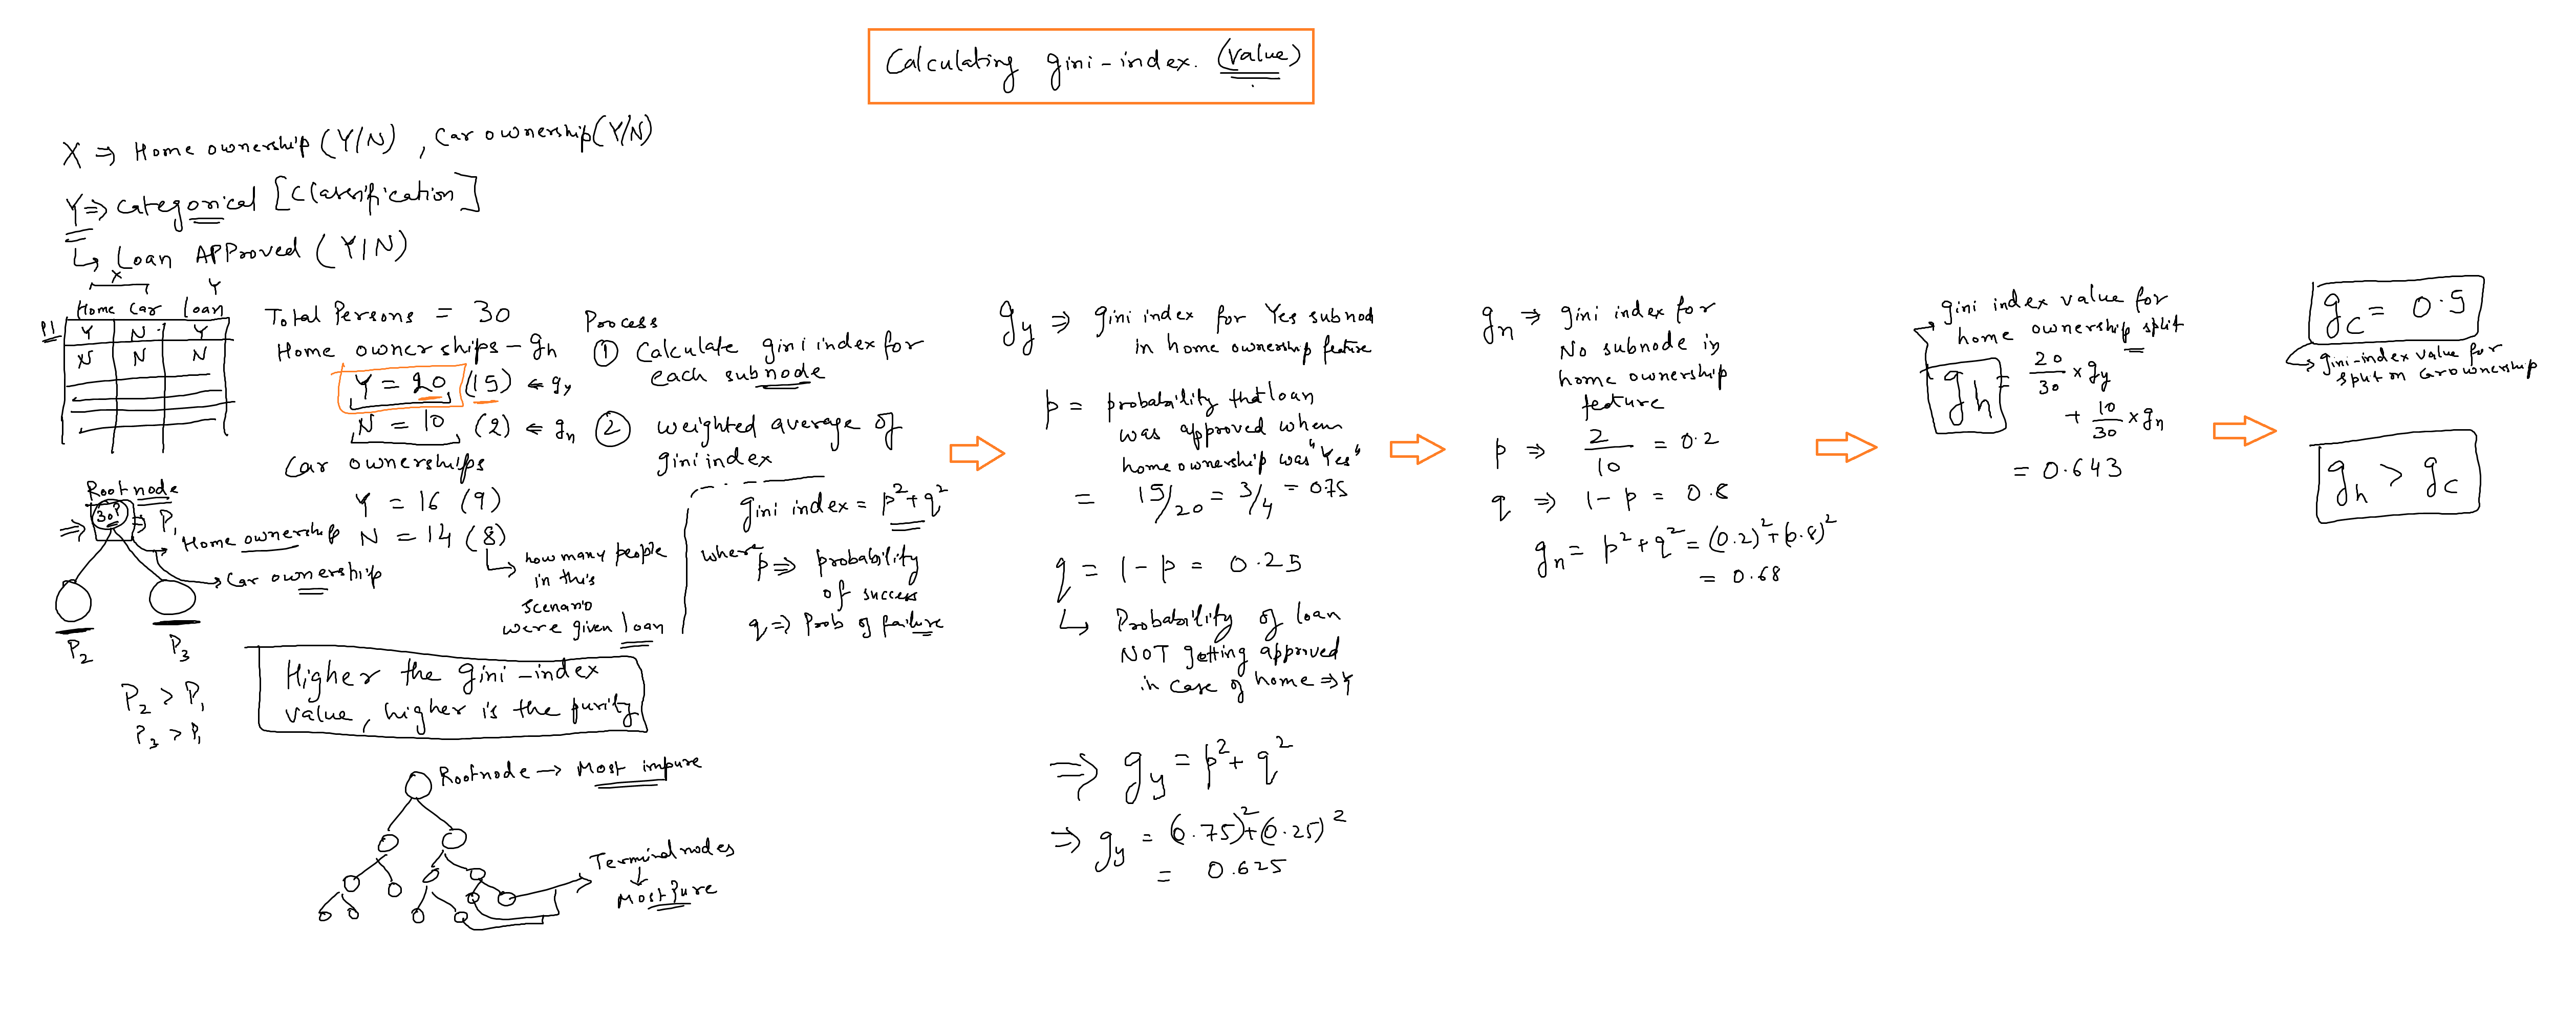 Calculating gini-index. (value)
X ⇒ Home ownership (Y/N), Car ownership (Y/N)
Y ⇒ categorical [Classification]
↳ Loan APProved (Y/N)
X
Y
Home Car loan
P1 Y N Y
N N N
Total Persons = 30
Home ownerships - gh
Y = 20 (15) ← gy
N = 10 (2) ← gn
Car ownerships
Y = 16 (9)
N = 14 (8)
↳ how many people
in this
scenario
were given loan
Process
① Calculate gini index for
each subnode
② weighted average of
gini index
gini index = p²+q²
where p ⇒ probability
of success
q ⇒ Prob of failure
Root node
⇒ 30P ⇒ P₁
Home ownership
Car ownership
P₂ P₃
P₂ > P₁
P₃ > P₁
Higher the gini-index
value, higher is the purity
Rootnode → Most impure
Terminal nodes
↓
Most Pure
gy ⇒ gini index for Yes subnod
in home ownership feature
p = probability that loan
was approved when
home ownership was "Yes"
= 15/20 = 3/4 = 0.75
q = 1-p = 0.25
↳ Probability of loan
NOT getting approved
in case of home ⇒ Y
⇒ gy = p²+q²
⇒ gy = (0.75)²+(0.25)²
= 0.625
gn ⇒ gini index for
No subnode in
home ownership
feature
p ⇒ 2/10 = 0.2
q ⇒ 1-p = 0.8
gn = p²+q² = (0.2)²+(0.8)²
= 0.68
gini index value for
home ownership split
gh = 20/30 × gy
+ 10/30 × gn
= 0.643
gc = 0.5
↳ gini-index value for
split on car ownership
gh > gc